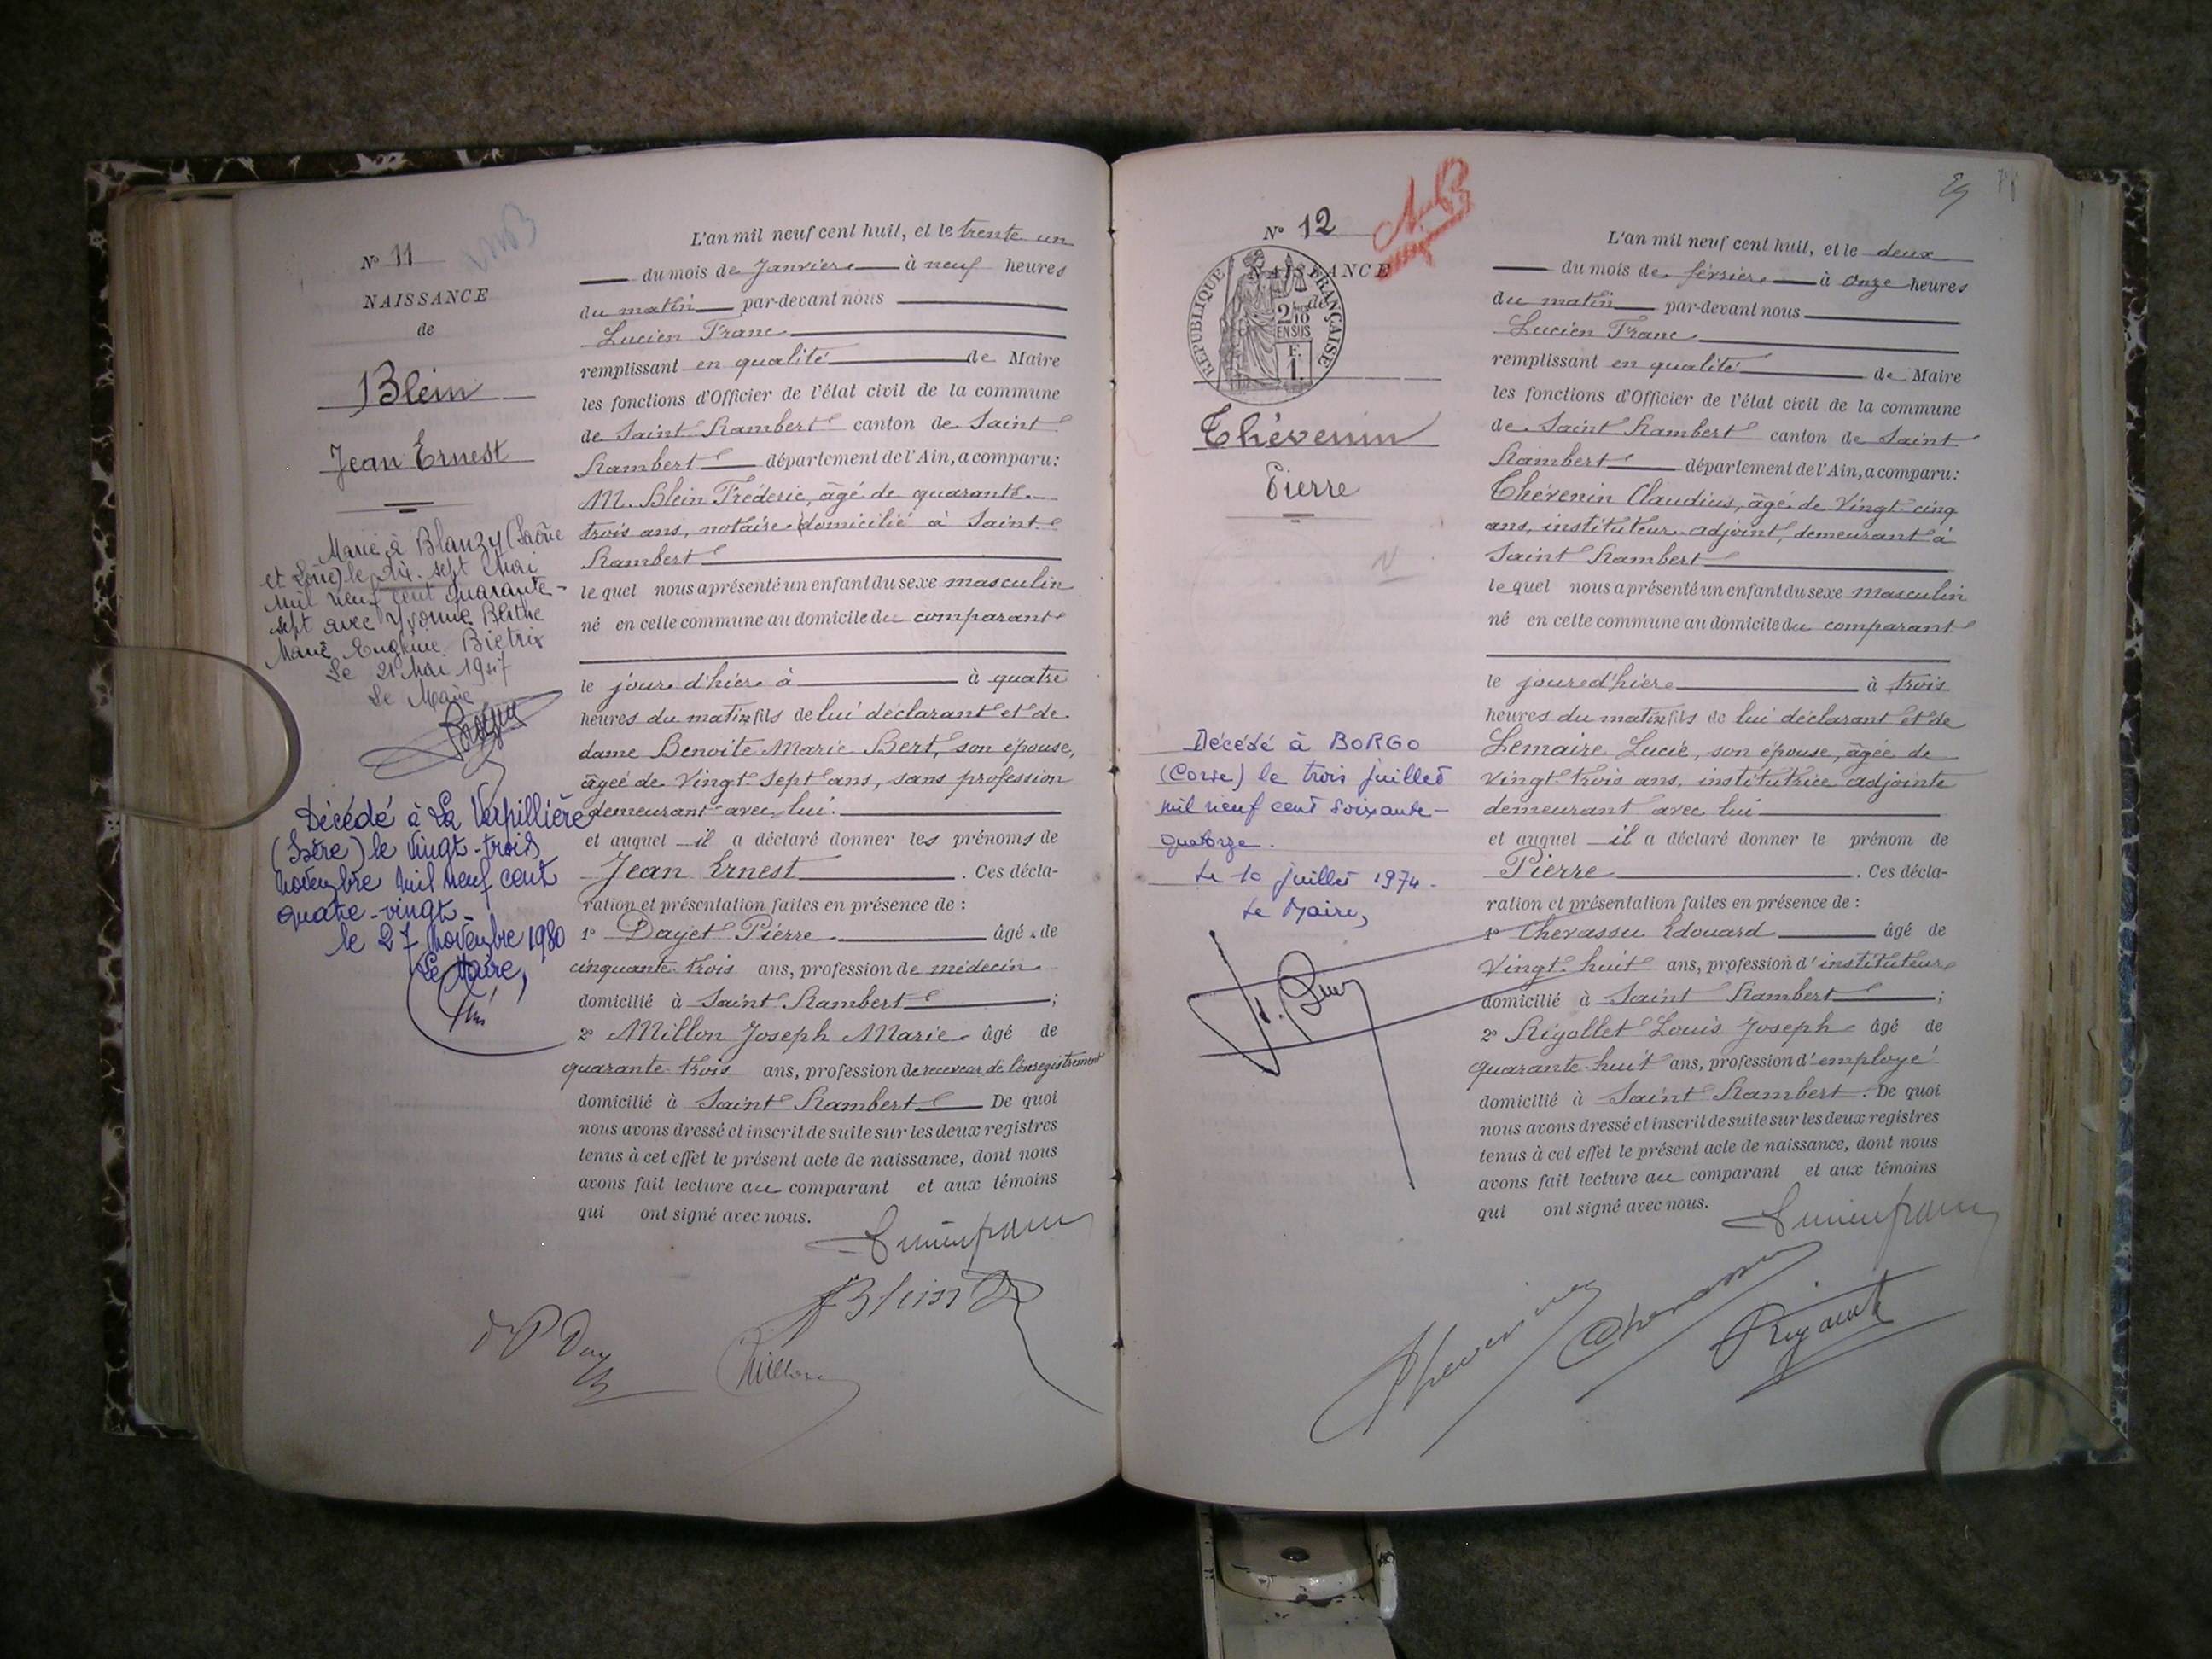 N° 11
NAISSANCE
de
Blein
Jean Ernest
Marié à Blanzy (Saône
et Loire) le dix-sept Mai
mil neuf cent quarante-
sept avec Yvonne Berthe
Marie Eugénie Bietrix
Le 21 Mai 1947
Le Maire
Décédé à La Verpillière
(Isère) le vingt-trois
novembre mil neuf cent
quatre-vingt-
le 27 Novembre 1980
Le Maire,
L'an mil neuf cent huit, et le trente un
du mois de Janvier à neuf heures
du matin par-devant nous
Lucien Franc
remplissant en qualité de Maire
les fonctions d'Officier de l'état civil de la commune
de Saint Rambert canton de Saint
Rambert département de l'Ain, a comparu:
M. Blein Fréderic, âgé de quarante
trois ans, notaire domicilié à Saint
Rambert
le quel nous a présenté un enfant du sexe masculin
né en cette commune au domicile du comparant
le jour d'hier à à quatre
heures du matin fils de lui déclarant et de
dame Benoite Marie Bert, son épouse,
âgeé de vingt sept ans, sans profession
demeurant avec lui.
et auquel il a déclaré donner les prénoms de
Jean Ernest . Ces décla-
ration et présentation faites en présence de :
1° Dayet Pierre âgé de
cinquante trois ans, profession de médecin
domicilié à Saint Rambert ;
2° Millon Joseph Marie âgé de
quarante trois ans, profession de receveur de l'enregistrement
domicilié à Saint Rambert De quoi
nous avons dressé et inscrit de suite sur les deux registres
tenus à cet effet le présent acte de naissance, dont nous
avons fait lecture au comparant et aux témoins
qui ont signé avec nous.
Lucien franc
Blein
Millon
N° 12
NAISSANCE
de
RÉPUBLIQUE FRANÇAISE
2/10
EN SUS
F.
1.
Thévenin
Pierre
Décédé à BORGO
(Corse) le trois juillet
mil neuf cent soixante-
quatorze.
Le 10 juillet 1974.
Le Maire,
L'an mil neuf cent huit, et le deux
du mois de février à onze heures
du matin par-devant nous
Lucien Franc
remplissant en qualité de Maire
les fonctions d'Officier de l'état civil de la commune
de Saint Rambert canton de Saint
Rambert département de l'Ain, a comparu:
Thévenin Claudius, âgé de vingt-cinq
ans, instituteur adjoint, demeurant à
Saint Rambert
le quel nous a présenté un enfant du sexe masculin
né en cette commune au domicile du comparant
le jour d'hier à trois
heures du matin fils de lui déclarant et de
Lemaire Lucie, son épouse, âgée de
vingt trois ans, institutrice adjointe
demeurant avec lui
et auquel il a déclaré donner le prénom de
Pierre . Ces décla-
ration et présentation faites en présence de :
1° Chevassu Edouard âgé de
vingt huit ans, profession d'instituteur
domicilié à Saint Rambert ;
2° Rigollet Louis Joseph âgé de
quarante huit ans, profession d'employé
domicilié à Saint Rambert. De quoi
nous avons dressé et inscrit de suite sur les deux registres
tenus à cet effet le présent acte de naissance, dont nous
avons fait lecture au comparant et aux témoins
qui ont signé avec nous.
Lucien franc
Thevenin